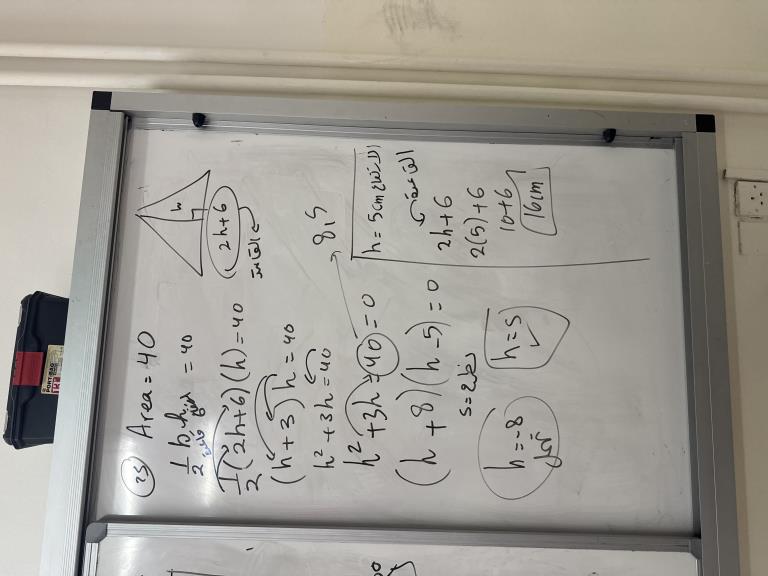 (25) Area = 40
1/2 b h = 40
قاعدة
1/2 (2h+6)(h) = 40
(h+3)h = 40
h² + 3h = 40
h² + 3h - 40 = 0
(h + 8)(h - 5) = 0
h = -8
h = 5
h
2h+6
القاعدة
8, 5
h = 5cm الارتفاع
القاعدة
2h+6
2(5)+6
10+6
16cm